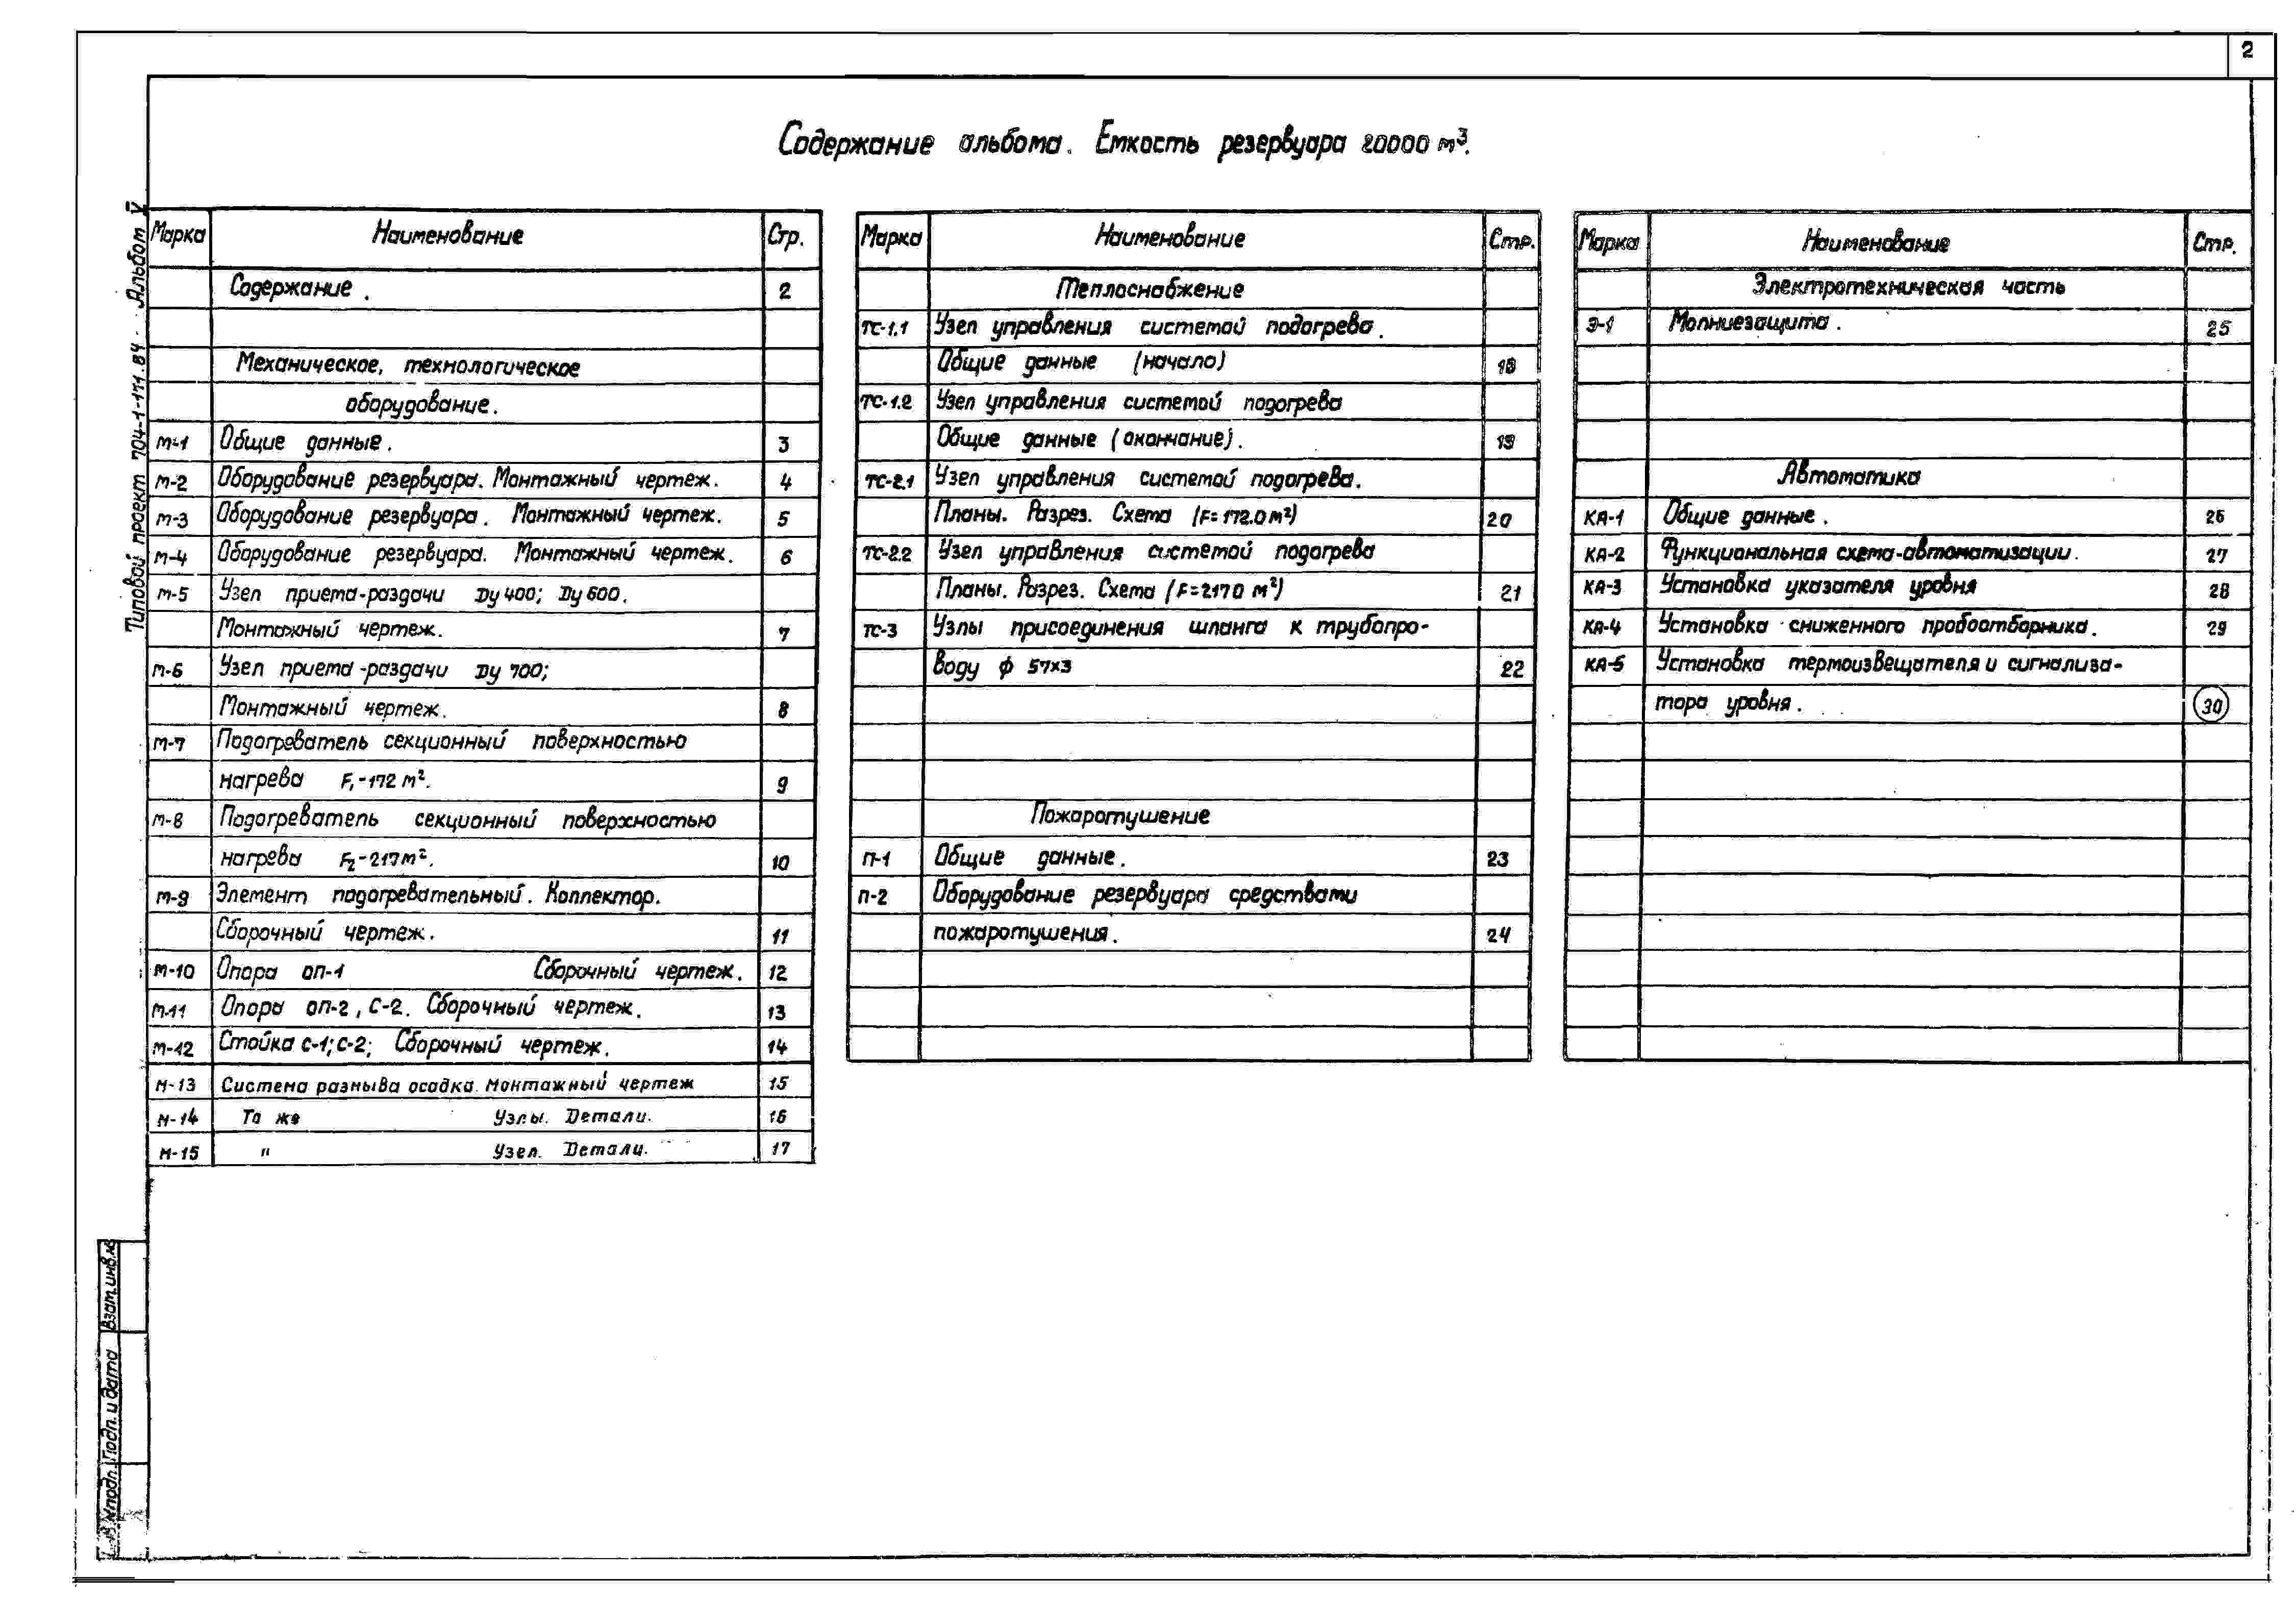 2
Содержание альбома. Емкость резервуара 20000 м³.
Типовой проект 704-1-171.84. Альбом V
Марка Наименование Стр.
Содержание. 2
Механическое, технологическое
оборудование.
М-1 Общие данные. 3
М-2 Оборудование резервуара. Монтажный чертеж. 4
М-3 Оборудование резервуара. Монтажный чертеж. 5
М-4 Оборудование резервуара. Монтажный чертеж. 6
М-5 Узел приема-раздачи Ду 400; Ду 600.
Монтажный чертеж. 7
М-6 Узел приема-раздачи Ду 700;
Монтажный чертеж. 8
М-7 Подогреватель секционный поверхностью
нагрева F₁-172 м². 9
М-8 Подогреватель секционный поверхностью
нагрева F₂-217 м². 10
М-9 Элемент подогревательный. Коллектор.
Сборочный чертеж. 11
М-10 Опора ОП-1 Сборочный чертеж. 12
М-11 Опора ОП-2, С-2. Сборочный чертеж. 13
М-12 Стойка С-1; С-2; Сборочный чертеж. 14
М-13 Система размыва осадка. Монтажный чертеж 15
М-14 То же Узлы. Детали. 16
М-15 " Узел. Детали. 17
Марка Наименование Стр.
Теплоснабжение
ТС-1.1 Узел управления системой подогрева.
Общие данные (начало) 18
ТС-1.2 Узел управления системой подогрева
Общие данные (окончание). 19
ТС-2.1 Узел управления системой подогрева.
Планы. Разрез. Схема (F=172.0 м²) 20
ТС-2.2 Узел управления системой подогрева
Планы. Разрез. Схема (F=217.0 м²) 21
ТС-3 Узлы присоединения шланга к трубопро-
воду ф 57х3 22
Пожаротушение
П-1 Общие данные. 23
П-2 Оборудование резервуара средствами
пожаротушения. 24
Марка Наименование Стр.
Электротехническая часть
Э-1 Молниезащита. 25
Автоматика
КА-1 Общие данные. 26
КА-2 Функциональная схема автоматизации. 27
КА-3 Установка указателя уровня 28
КА-4 Установка сниженного пробоотборника. 29
КА-5 Установка термоизвещателя и сигнализа-
тора уровня. 30
Взам. инв. №
Подп. и дата
№подл.